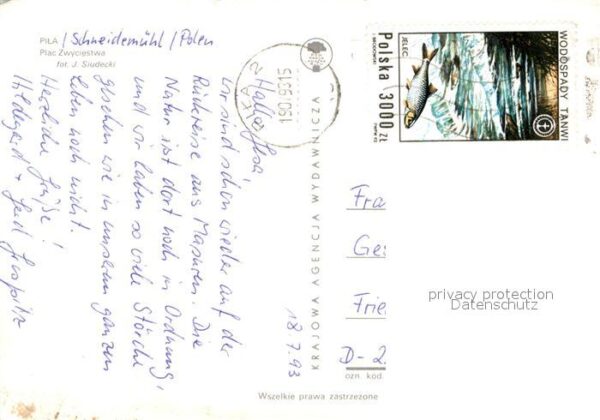 PIŁA / Schneidemühl / Polen
Plac Zwycięstwa
fot. J. Siudecki
18.7.93
Hallo
wir sind schon wieder auf der
Rückreise aus Masuren. Die
Natur ist dort noch in Ordnung,
und wir haben so viele Störche
gesehen wie in unserem ganzen
Leben noch nicht.
Herzliche Grüße!
Hildegard +
KRAJOWA AGENCJA WYDAWNICZA
WODOSPADY TANWI
JELEC
Polska 3000 ZŁ
Fra
Ge
Frie
D-2
ozn. kod.
Wszelkie prawa zastrzeżone
privacy protection
Datenschutz